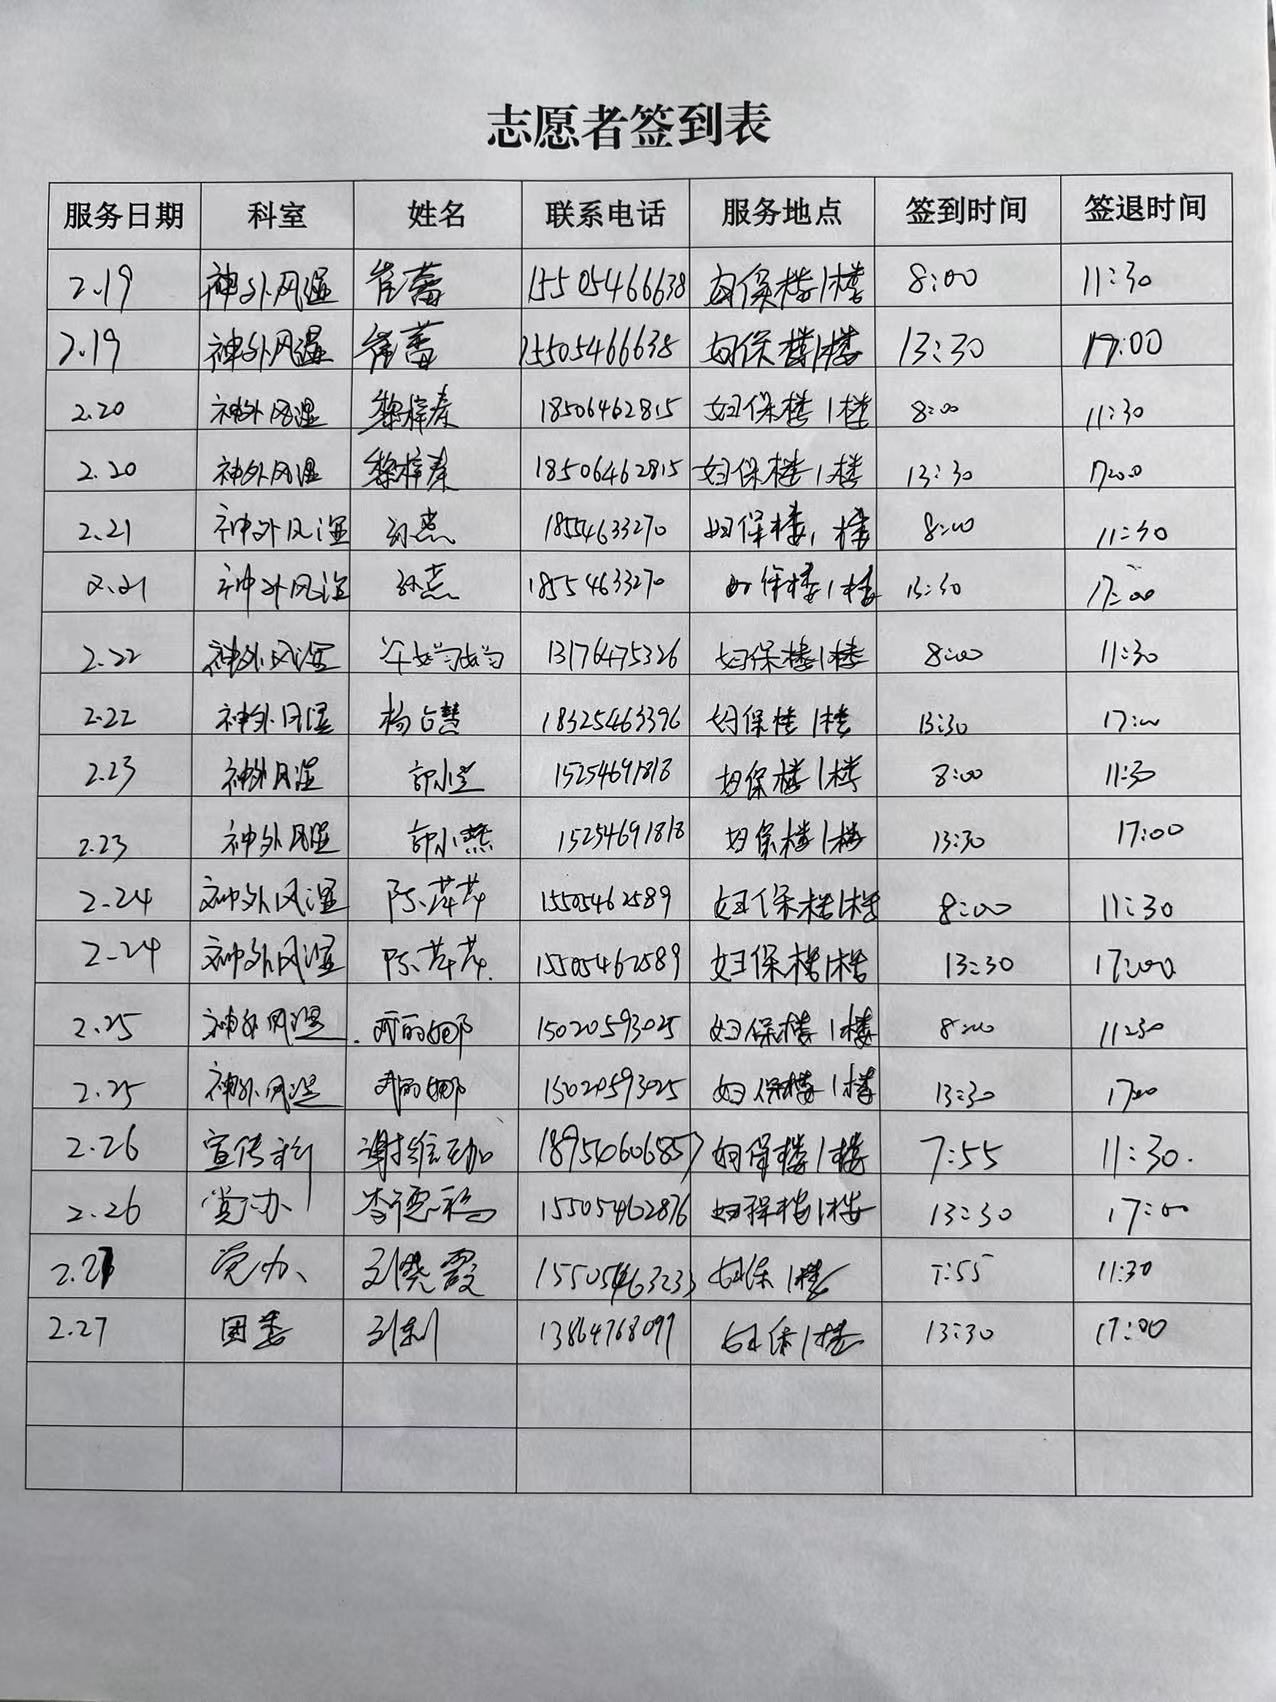 志愿者签到表
服务日期 科室 姓名 联系电话 服务地点 签到时间 签退时间
2.19 神外风湿 崔蕾 15505466638 妇保楼1楼 8:00 11:30
2.19 神外风湿 崔蕾 15505466638 妇保楼1楼 13:30 17:00
2.20 神外风湿 黎梓秦 18506462815 妇保楼1楼 8:00 11:30
2.20 神外风湿 黎梓秦 18506462815 妇保楼1楼 13:30 17:00
2.21 神外风湿 18554633270 妇保楼1楼 8:00 11:30
2.21 神外风湿 18554633270 妇保楼1楼 13:30 17:00
2.22 神外风湿 13176475326 妇保楼1楼 8:00 11:30
2.22 神外风湿 18325463396 妇保楼1楼 13:30 17:00
2.23 神外风湿 15254691818 妇保楼1楼 8:00 11:30
2.23 神外风湿 15254691818 妇保楼1楼 13:30 17:00
2.24 神外风湿 陈芹芹 15505462589 妇保楼1楼 8:00 11:30
2.24 神外风湿 陈芹芹 15505462589 妇保楼1楼 13:30 17:00
2.25 神外风湿 15020593025 妇保楼1楼 8:00 11:30
2.25 神外风湿 15020593025 妇保楼1楼 13:30 17:00
2.26 宣传科 18954060685 妇保楼1楼 7:55 11:30.
2.26 党办 李德福 15505462876 妇保楼1楼 13:30 17:00
2.27 党办 刘晓霞 15505463233 妇保1楼 7:55 11:30
2.27 团委 刘利 13864768097 妇保1楼 13:30 17:00